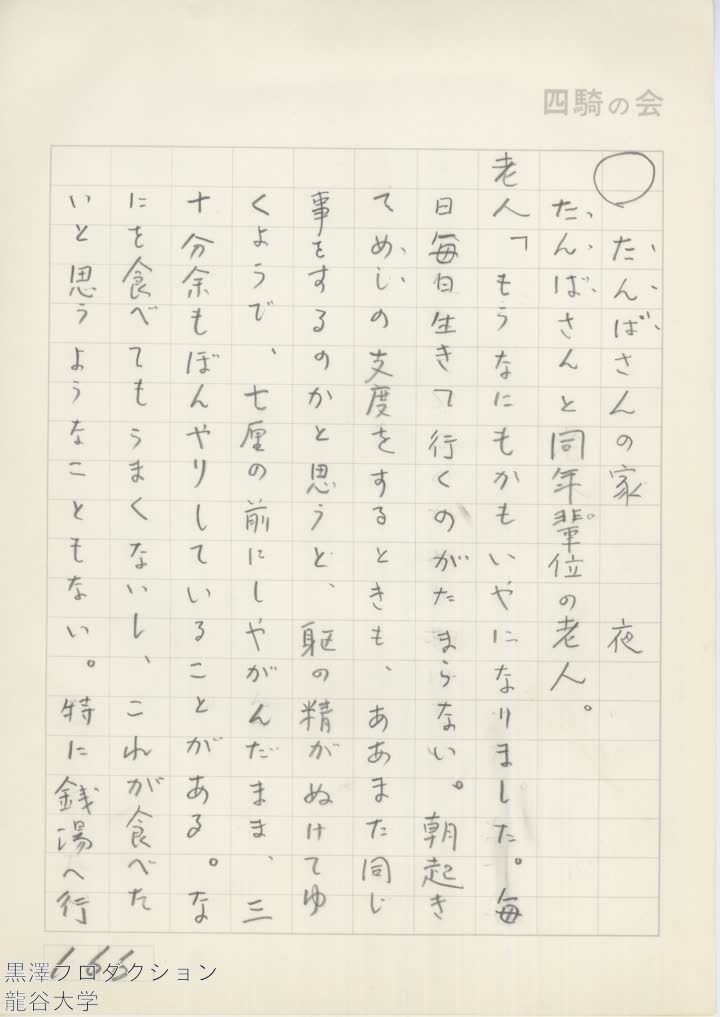 四騎の会
○ たんばさんの家 夜
たんばさんと同年輩位の老人。
老人「もうなにもかもいやになりました。毎
日毎日生きて行くのがたまらない。朝起き
てめしの支度をするときも、ああまた同じ
事をするのかと思うと、躯の精がぬけてゆ
くようで、七厘の前にしやがんだまま、三
十分余もぼんやりしていることがある。な
にを食べてもうまくないし、これが食べた
いと思うようなこともない。特に銭湯へ行
166
黒澤プロダクション
龍谷大学